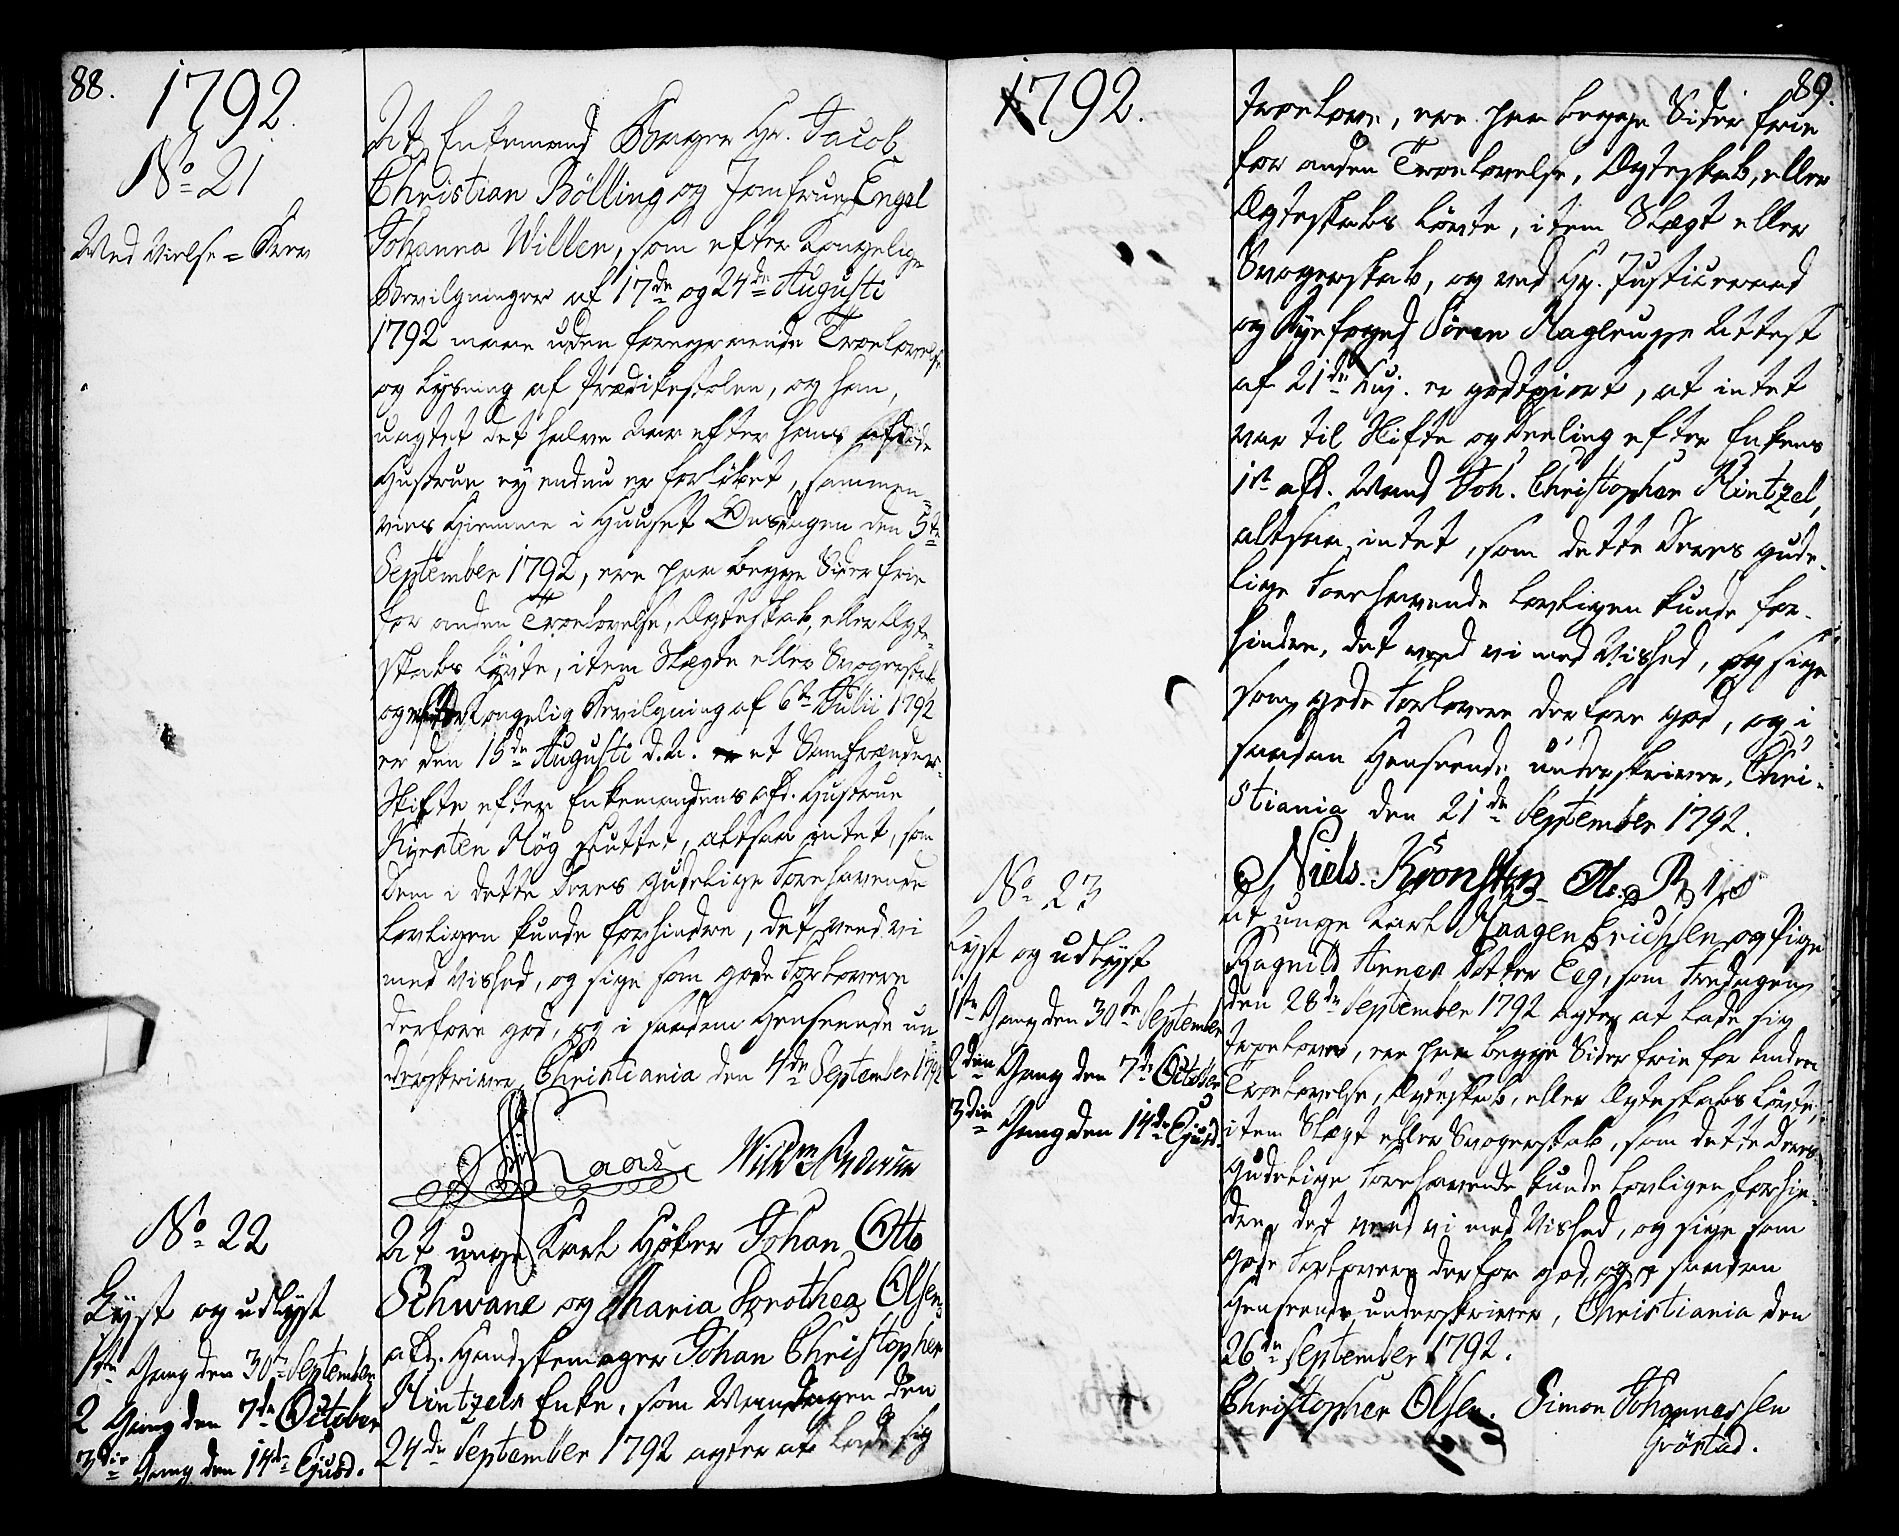 88.
1792.
No 21
Med Vielse = Brev
At Enkemand Borger Hr. Jacob
Christian Bölling og Jomfrue Engel
Johanna Willen, som efter Kongelige
Bevilgninger af 17de og 24de Augusti
1792 maae uden foregaaende Troelovelse
og Lysning af Prædikestolen, og han,
uagtet det halve Aar efter hans afdøde
Hustrue ey endnu er forløbet, sammen-
vies hiemme i Huuset Onsdagen den 5te
September 1792, ere paa begge Sider frie
for anden Troelovelse, Ægteskab, eller Ægte-
skabs Løvte, item Slægt eller Svogerskab
og efter Kongelig Bevilgning af 6te Julii 1792
er den 15de Augusti d. A. et Samfrænder-
Skifte efter Enkemandens afd. Hustrue
Kirsten Hög sluttet, altsaa intet, som
dem i dette deres gudelige Forehavende
lovligen kunde forhindre, det veed vi
med Vished, og sige som gode Forlovere
derfore god, og i saadan Henseende un-
derskriver, Christiania den 4de September 1792
No 22
Lyst og udlyst
1ste Gang den 30te September
2 Gang den 7de October
3die Gang den 14de Ejusd.
At unge Karl Høker Johan Otto
Schwane og Maria Dorothea Olsen,
afd. Handskemager Johan Christopher
Kintzels Enke, som Mandagen den
24de September 1792 agter at lade sig
1792.
89.
troelove, ere paa begge Sider frie
for anden Troelovelse, Ægteskab, eller
Ægteskabs Løvte, item Slægt eller
Svogerskab, og ved Hr. Justiceraad
og Byefoged Sören Attest
af 21de huj. er godtgiort, at intet
var til Skifte og Deeling efter Enkens
1st afd. Mand Joh. Christopher Kintzel,
altsaa intet, som dette deres gude-
lige Forehavende lovligen kunde for-
hindre, det veed vi med Vished, og sige
som gode Forlovere derfore god, og i
saadan Henseende underskriver, Chri-
stiania den 21de September 1792.
Niels
No 23
Lyst og udlyst
1ste Gang den 30te September
2den Gang den 7de October
3die Gang den 14de Ejusd.
At unge Karl Haagen Erichsen og Pige
Ragnild Arnes Datter Eeg, som Fredagen
den 28de September 1792 agter at lade sig
troelove, ere paa begge Sider frie for anden
Troelovelse, Ægteskab, eller Ægteskabs Løvte,
item Slægt eller Svogerskab, som dette deres
gudelige Forehavende kunde lovligen forhin-
dre, det veed vi med Vished, og sige som
gode Forlovere derfor god, og i saadan
Henseende underskriver, Christiania den
26de September 1792.
Christopher Olsen. Simon Johannessen